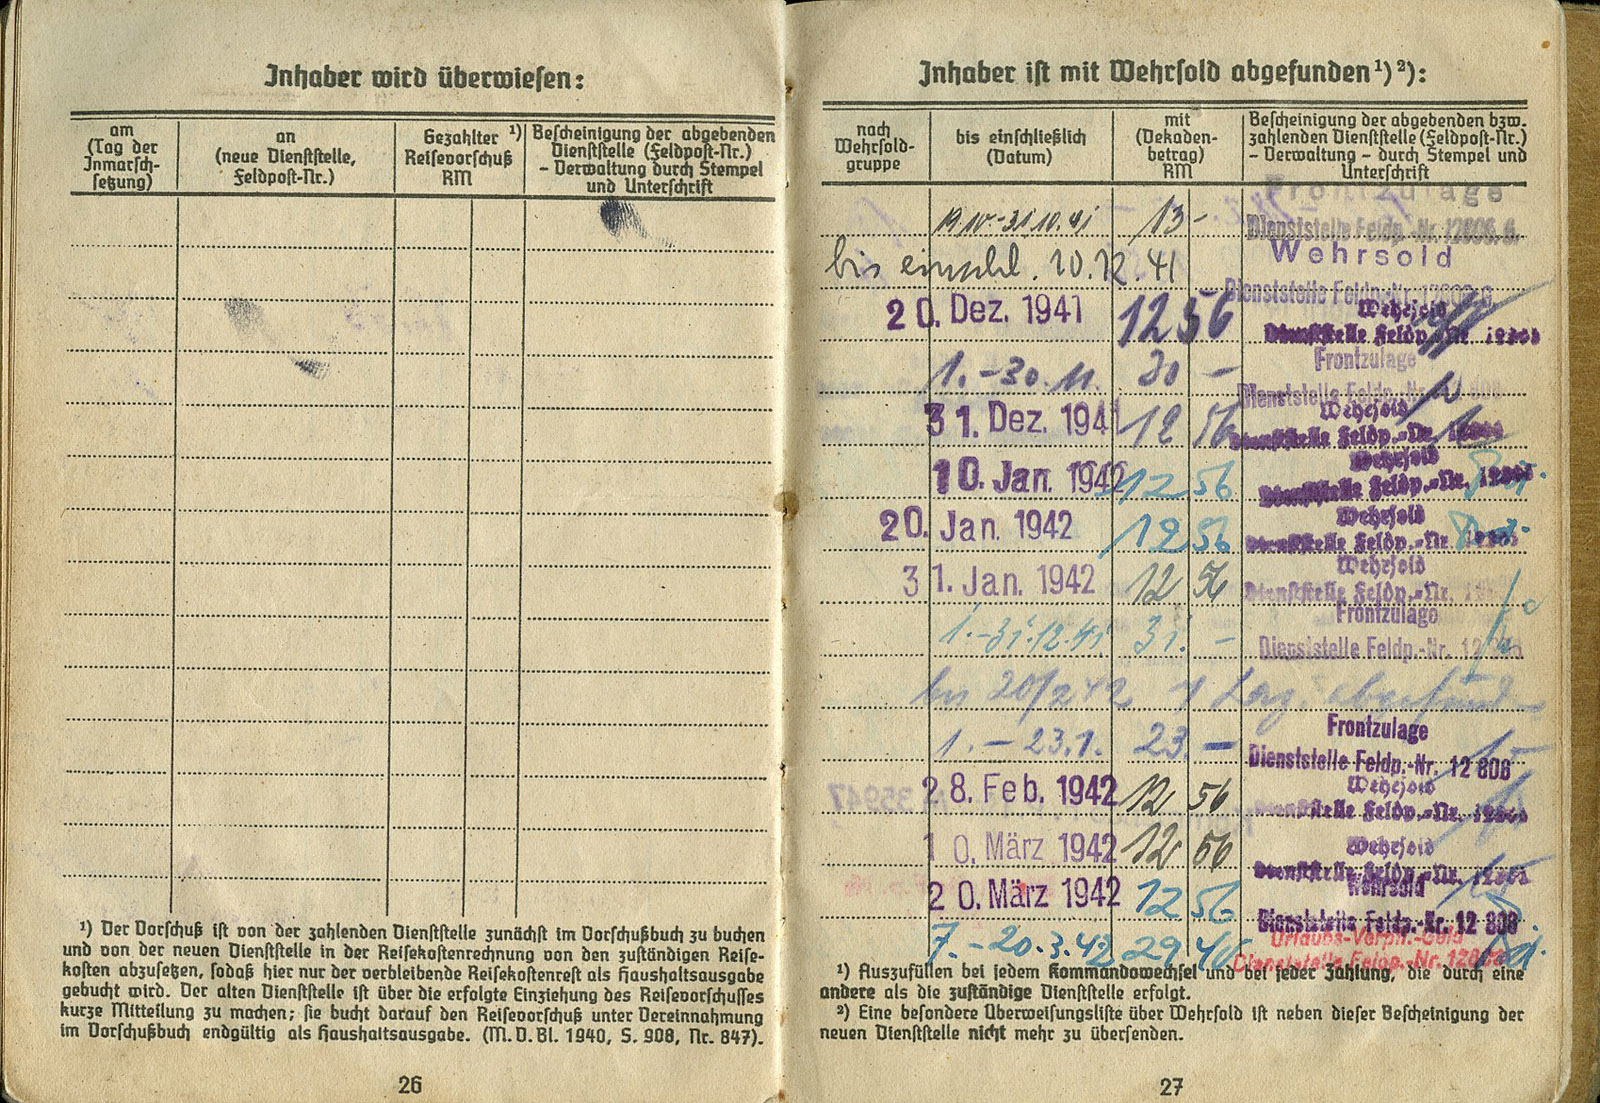 Inhaber wird überwiesen:
am
(Tag der
Inmarsch-
setzung)
an
(neue Dienststelle,
Feldpost-Nr.)
Gezahlter ¹)
Reisevorschuß
RM
Bescheinigung der abgebenden
Dienststelle (Feldpost-Nr.)
- Verwaltung durch Stempel
und Unterschrift
¹) Der Vorschuß ist von der zahlenden Dienststelle zunächst im Vorschußbuch zu buchen
und von der neuen Dienststelle in der Reisekostenrechnung von den zuständigen Reise-
kosten abzusetzen, sodaß hier nur der verbleibende Reisekostenrest als Haushaltsausgabe
gebucht wird. Der alten Dienststelle ist über die erfolgte Einziehung des Reisevorschusses
kurze Mitteilung zu machen; sie bucht darauf den Reisevorschuß unter Vereinnahmung
im Vorschußbuch endgültig als Haushaltsausgabe. (M. V. Bl. 1940, S. 908, Nr. 847).
26
Inhaber ist mit Wehrsold abgefunden ¹) ²):
nach
Wehrsold-
gruppe
bis einschließlich
(Datum)
mit
(Dekaden-
betrag)
RM
Bescheinigung der abgebenden bzw.
zahlenden Dienststelle (Feldpost-Nr.)
- Verwaltung - durch Stempel und
Unterschrift
Frontzulage
31.10.41 13 -
Dienststelle Feldp.-Nr. 12806
Wehrsold
bis einschl. 10.12.41
Dienststelle Feldp.-Nr.
20. Dez. 1941 12 56
Wehrsold
Dienststelle Feldp.-Nr. 12806
Frontzulage
1. - 30. 11. 30 -
Dienststelle Feldp.-Nr. 12 806
31. Dez. 1941 12 56
Wehrsold
Dienststelle Feldp.-Nr. 12806
10. Jan. 1942 12 56
Wehrsold
Dienststelle Feldp.-Nr. 12806
20. Jan. 1942 12 56
Wehrsold
Dienststelle Feldp.-Nr. 12806
31. Jan. 1942 12 56
Wehrsold
Dienststelle Feldp.-Nr.
Frontzulage
1. - 31.12.41 31. -
Dienststelle Feldp.-Nr. 12 806
bis 20/2 42 1
Frontzulage
1. - 23.1. 23. -
Dienststelle Feldp.-Nr. 12 806
28. Feb. 1942 12 56
Wehrsold
Dienststelle Feldp.-Nr. 12806
10. März 1942 12 56
Wehrsold
Dienststelle Feldp.-Nr. 12806
20. März 1942 12 56
Wehrsold
Dienststelle Feldp.-Nr. 12 806
7. - 20.3.42 29 40
Urlaubs-Verpfl.-Geld
Dienststelle Feldp.-Nr. 12806
¹) Auszufüllen bei jedem Kommandowechsel und bei jeder Zahlung, die durch eine
andere als die zuständige Dienststelle erfolgt.
²) Eine besondere Überweisungsliste über Wehrsold ist neben dieser Bescheinigung der
neuen Dienststelle nicht mehr zu übersenden.
27